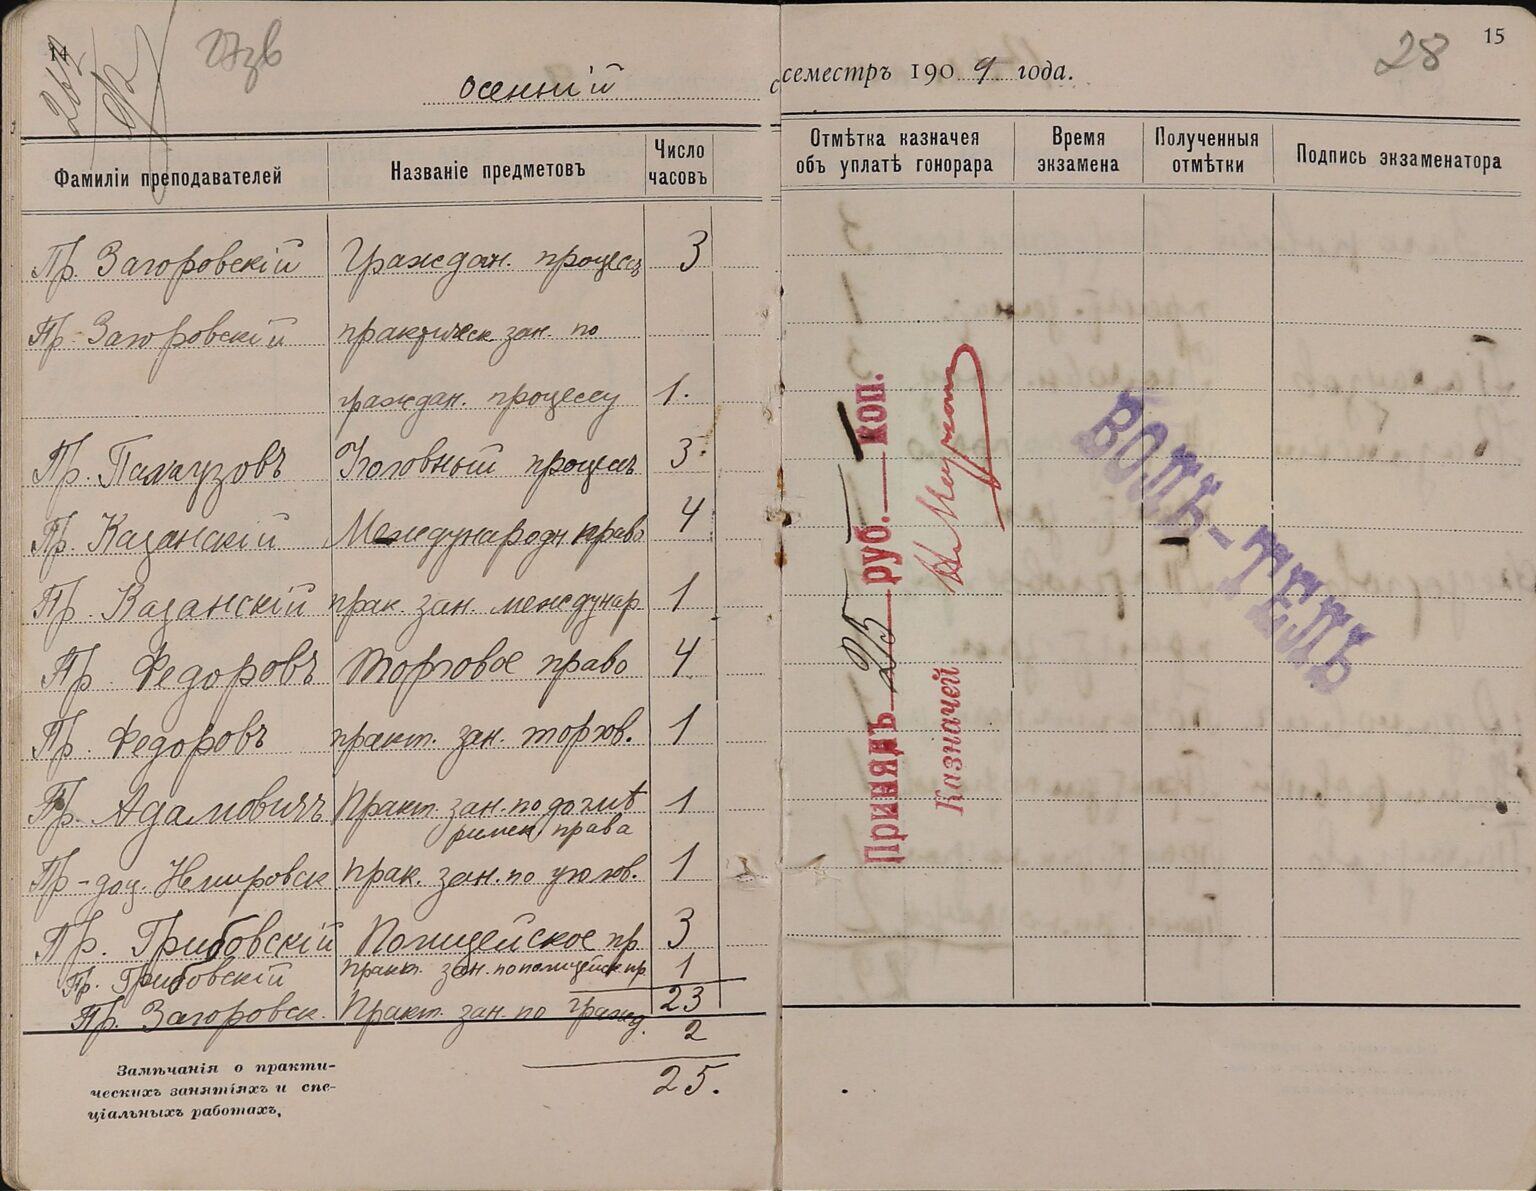 14
27зв
28
15
осенній семестръ 1909 года.
Фамиліи преподавателей
Названіе предметовъ
Число часовъ
Отмѣтка казначея объ уплатѣ гонорара
Время экзамена
Полученныя отмѣтки
Подпись экзаменатора
Пр. Загоровскій Граждан. процессъ 3
Пр. Загоровскій практическ зан. по
граждан. процессу 1.
Пр. Палаузовъ Уголовный процессъ 3
Пр. Казанскій Международн право 4
Пр. Казанскій прак. зан. междунар 1
Пр. Федоровъ Торговое право 4
Пр. Федоровъ практ. зан. торгов. 1
Пр. Адамовичъ Практ. зан. по догмѣ 1
римск права
Пр-доц. Немировск прак. зан. по уголов. 1
Пр. Грибовскій Полицейское пр 3
Пр. Грибовскій практ. зан. по полицейск пр. 1
23
Пр. Загоровск. Практ. зан. по гражд. 2
25.
Замѣчанія о практи-
ческихъ занятіяхъ и спе-
ціальныхъ работахъ.
Принялъ 25 руб. — коп.
Казначей
ВОЛЬ-ТЕЛЬ